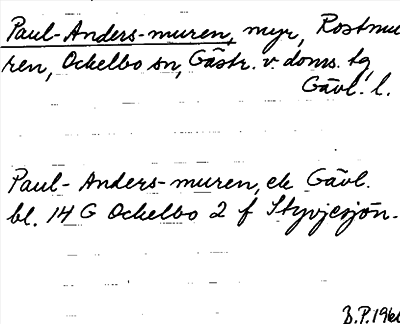 Paul-Anders-muren, myr, Rostmu
ren, Ockelbo sn, Gästr. v. doms. tg,
Gävl. l.
Paul-Anders-muren, ek Gävl.
bl. 14 G Ockelbo 2 f Styvjesjön.
B.P. 196